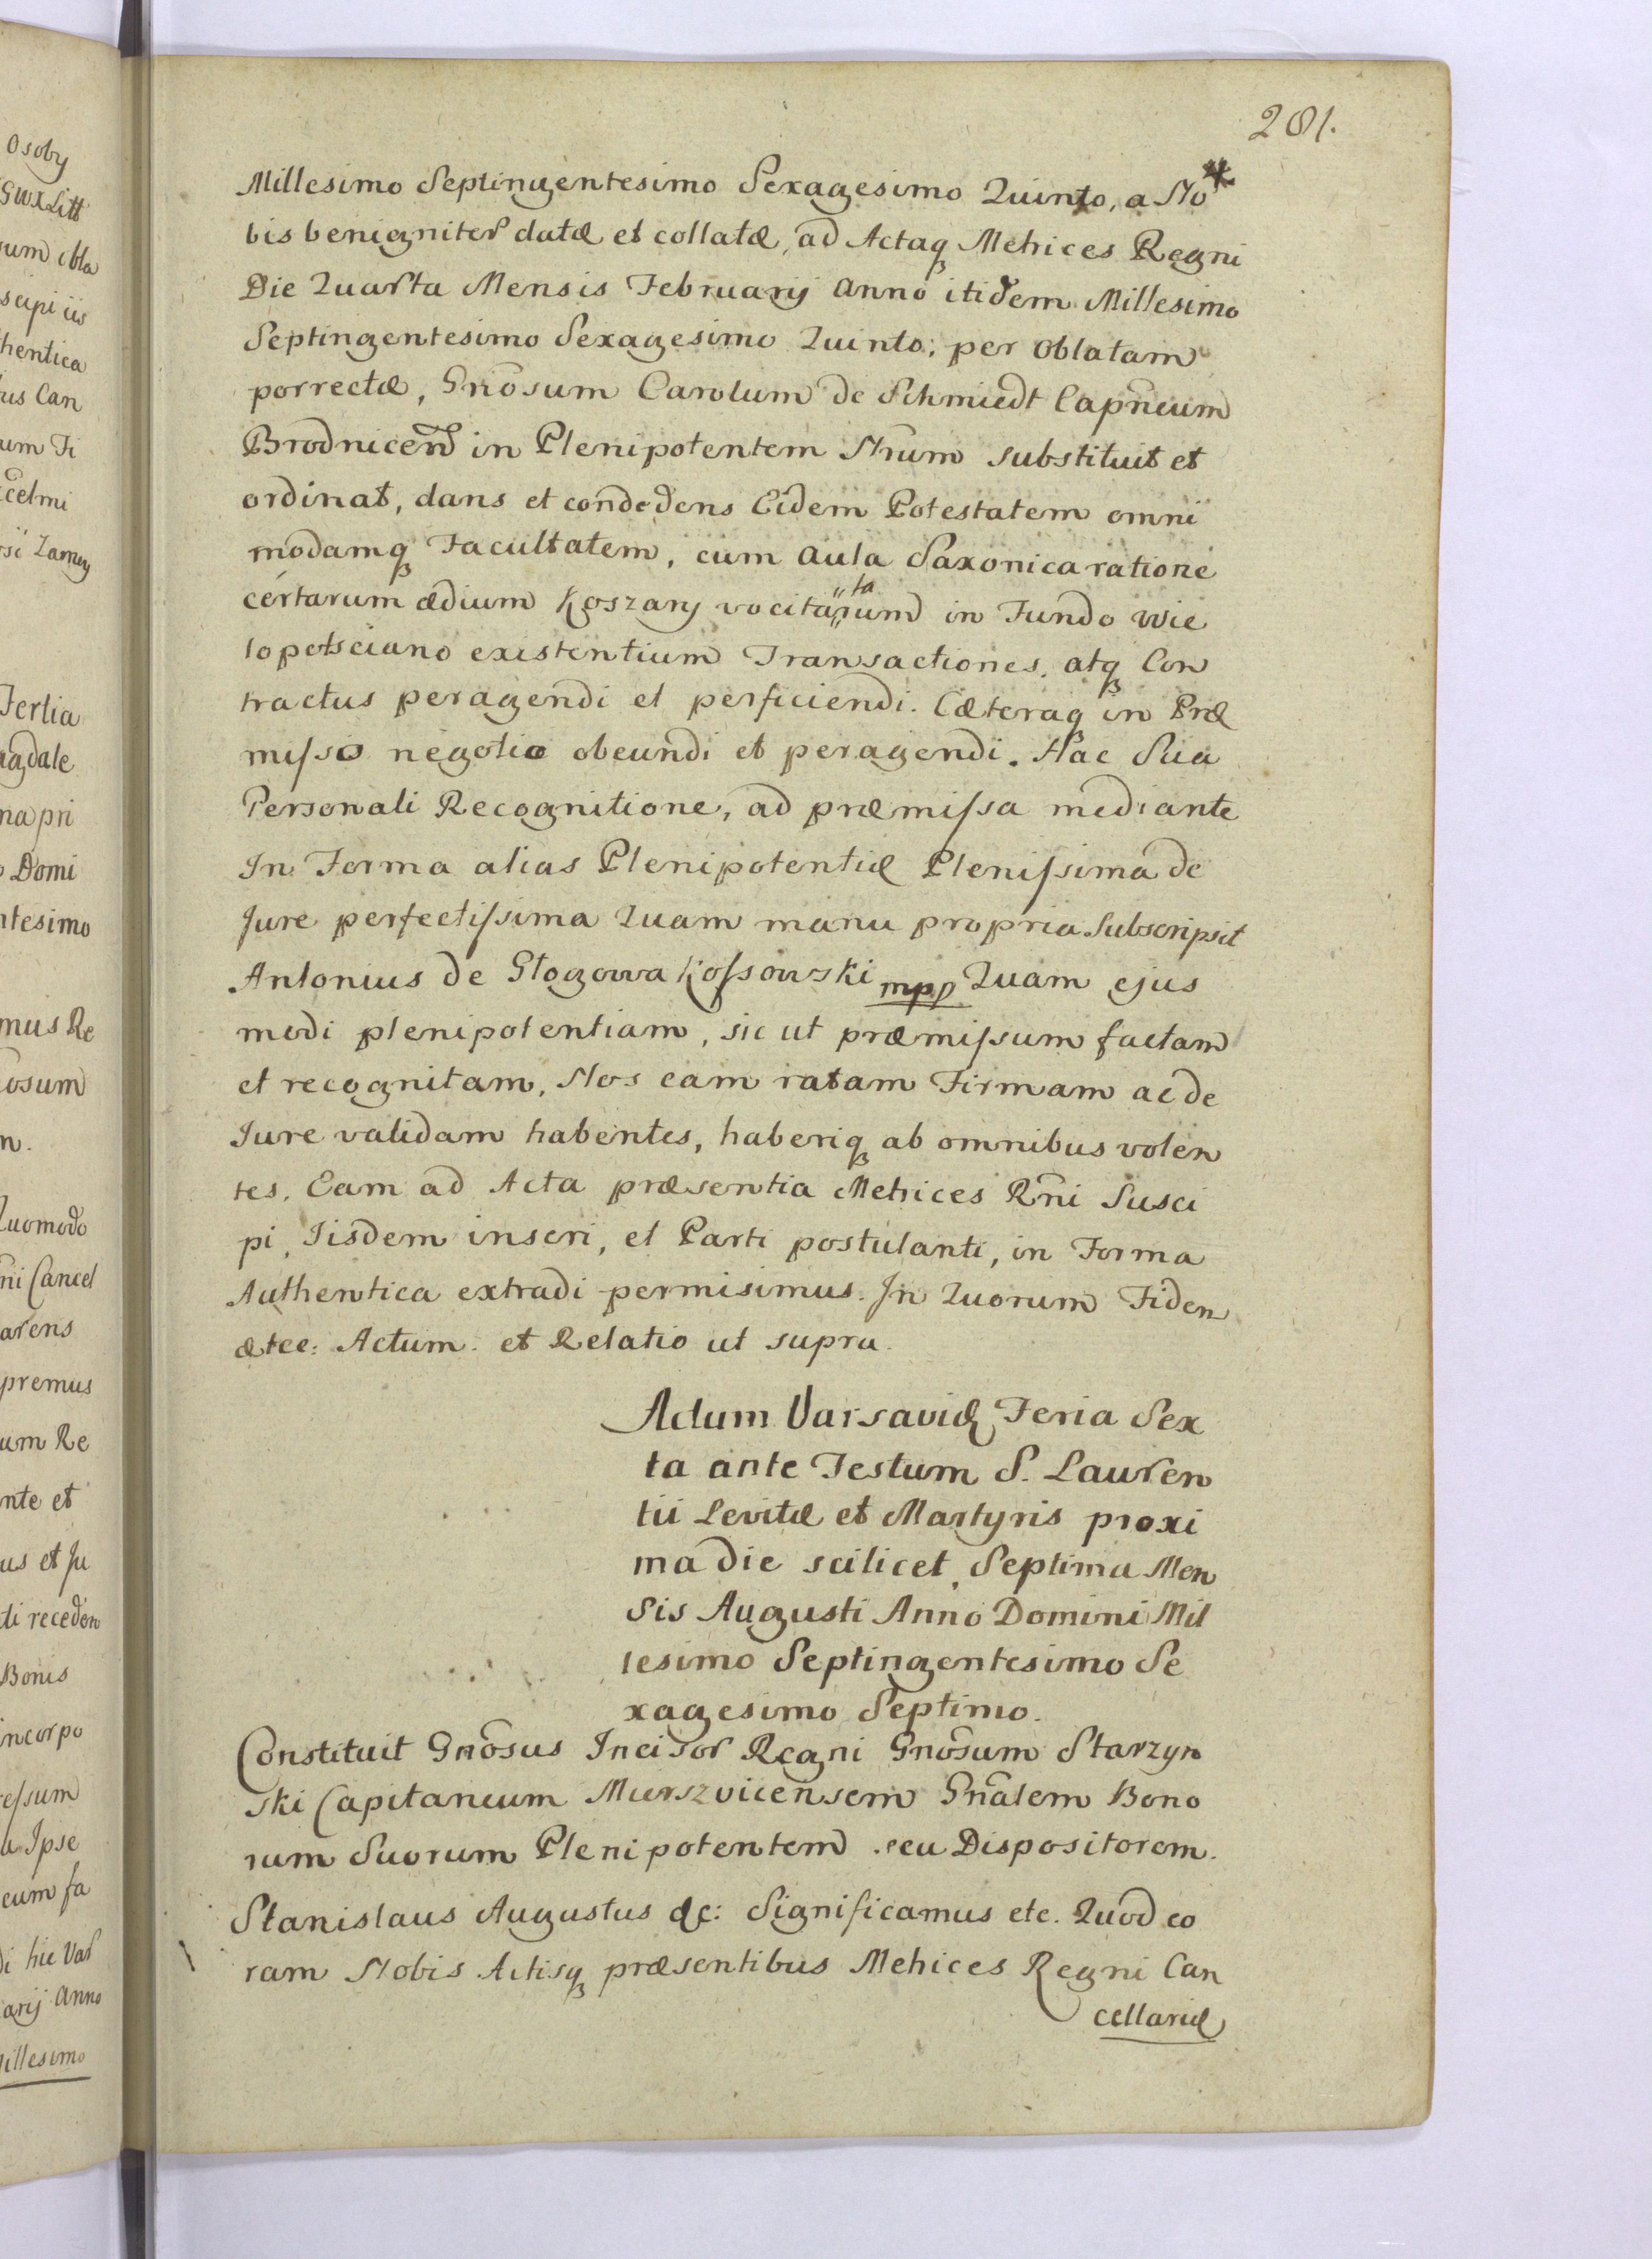 Osoby
GWXLitt
sum obla
scipi iis
thentica
tus Can
um Ti
celmi
Tertia
agdale
na pri
Domi
ntesimo
mus Re
osum
n.
Quomodo
ni Cancel
arens
premus
um Re
nte et
us et Ju
di recedon
Bonis
incorpo
essum
a Ipse
cum fa
di hic Var
arij Anno
Millesimo
281.
Millesimo Septingentesimo Sexagesimo Quinto, a No
bis benigniter datæ et collatæ, ad Actaq Metrices Regni
Die Quarta Mensis Februarij Anno itidem Millesimo
Septingentesimo Sexagesimo Quinto, per Oblatam
porrectæ, Gnosum Carolum de Schmiedt Capneum
Brodnicen in Plenipotentem Nrum substituit et
ordinat, dans et condedens Eidem Potestatem omni
modamq Facultatem, cum Aula Saxonica ratione
certarum ædium Koszary vocitarum in Fundo Wie
ta
lopolsciano existentium Transactiones, atq Con
tractus peragendi et perficiendi. Cæteraq in Præ
misso negotio obeundi et peragendi. Hac Sua
Personali Recognitione, ad præmissa mediante
In Forma alias Plenipotentiæ Plenissima de
Jure perfectissima Quam manu propria Subscripsit
Antonius de Glogowa Kossowski mpp Quam ejus
modi plenipotentiam, sic ut præmissum factam
et recognitam, Nos eam ratam Firmam ac de
Jure validam habentes, haberiq ab omnibus volen
tes. Eam ad Acta præsentia Metrices Rni Susci
pi, Iisdem inseri, et Parti postulanti, in Forma
Authentica extradi permisimus. In Quorum Fidem
ætcc: Actum et Relatio ut supra.
Actum Varsaviæ Feria Sex
ta ante Festum S. Lauren
tii Levitæ et Martyris proxi
ma die scilicet Septima Men
sis Augusti Anno Domini Mil
lesimo Septingentesimo Se
xagesimo Septimo.
Constituit Gnosus Incisor Regni Gnosum Starzyn
ski Capitaneum Murszvicensem Gnalem Bono
rum Suorum Plenipotentem seu Dispositorem.
Stanislaus Augustus &c: Significamus etc. Quod co
ram Nobis Actisq præsentibus Metrices Regni Can
cellariæ